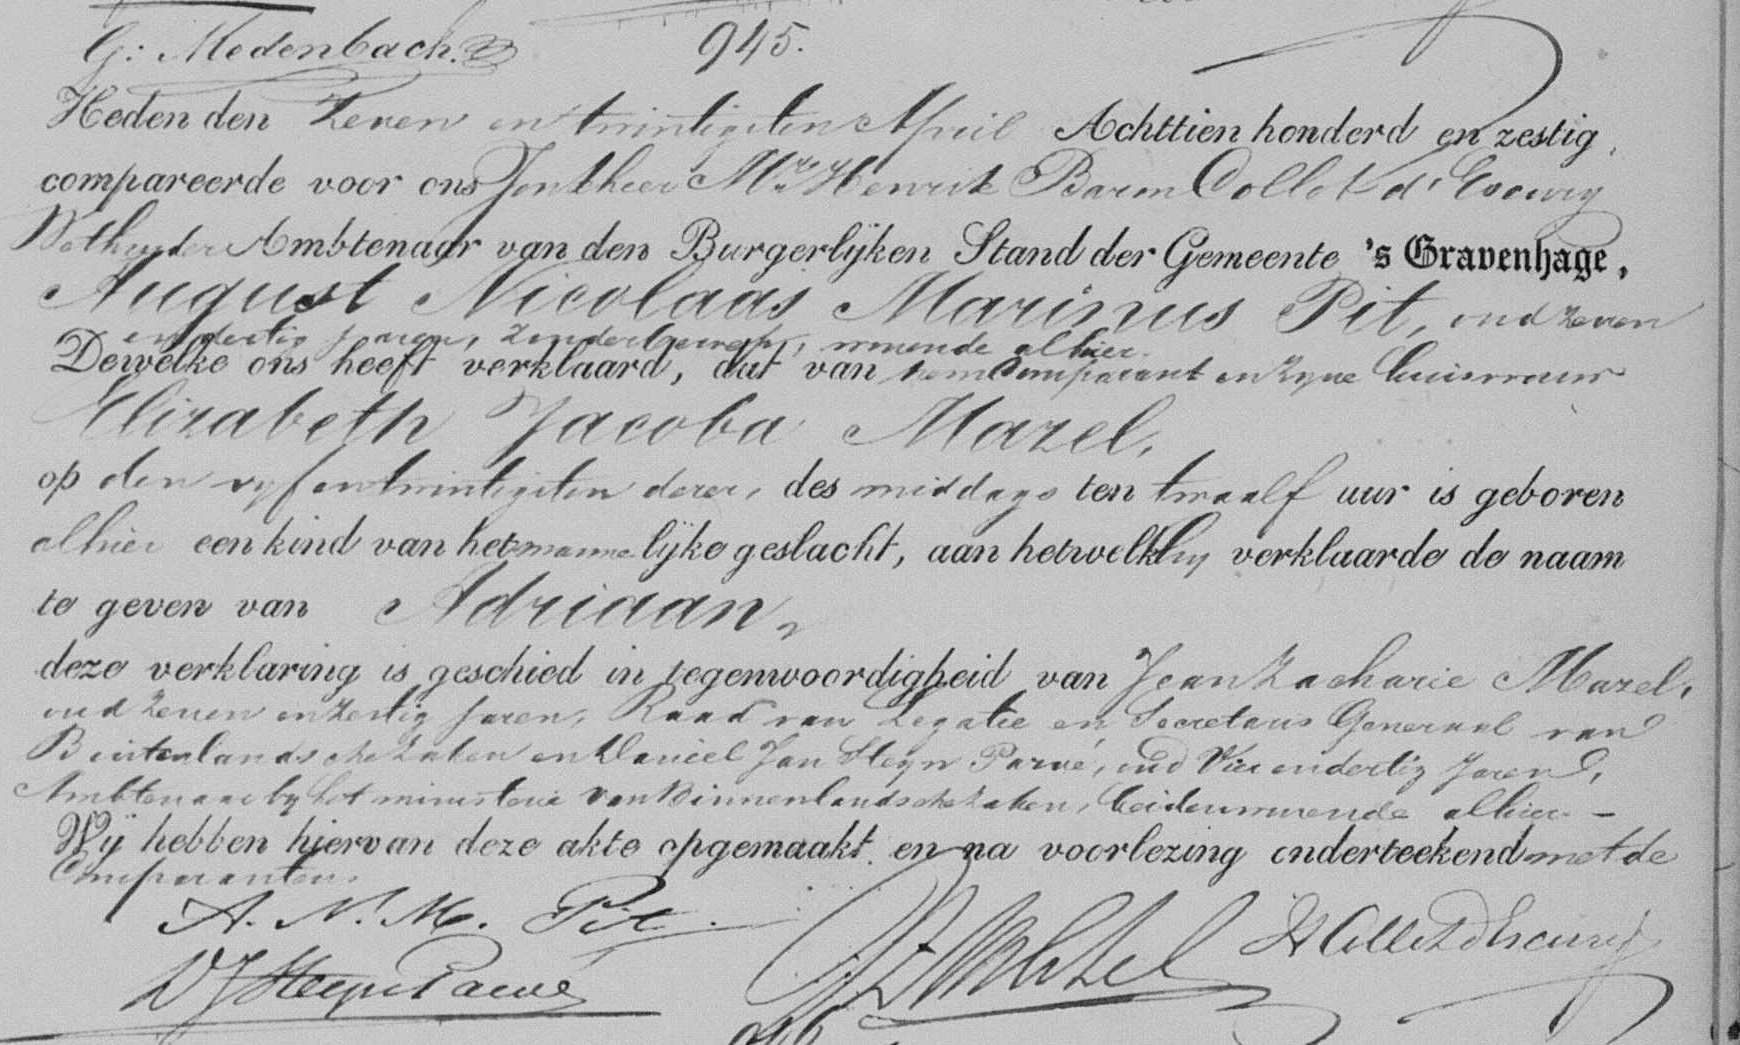 G: Medenbach.
945.
Heden den zeven en twintigsten April Achttien honderd en zestig,
compareerde voor ons Jonkheer Mr. Henrik Baron Collot d'Escury
Wethouder Ambtenaar van den Burgerlijken Stand der Gemeente 's Gravenhage,
August Nicolaas Marinus Pit, oud zeven
en dertig jaren, zonder beroep, wonende alhier.
Dewelke ons heeft verklaard, dat van hem Comparant en zyne huisvrouw
Elizabeth Jacoba Mazel,
op den vyf en twintigsten dezer, des middags ten twaalf uur is geboren
alhier een kind van het manne lijke geslacht, aan hetwelk hy verklaarde de naam
te geven van Adriaan,
deze verklaring is geschied in tegenwoordigheid van Jean Zacharie Mazel,
oud zeven en zestig jaren, Raad van Legatie en Secretaris Generaal van
Buitenlandsche Zaken en Daniel Jan Steyn Parvé, oud Vier en dertig Jaren,
Ambtenaar by het ministerie van Binnenlandsche Zaken, beiden wonende alhier. –
Wij hebben hiervan deze akte opgemaakt en na voorlezing onderteekend met de
Comparanten.
A. N. M. Pit.
J Z Mazel
H Collot d'Escury
D J Steyn Parvé
946